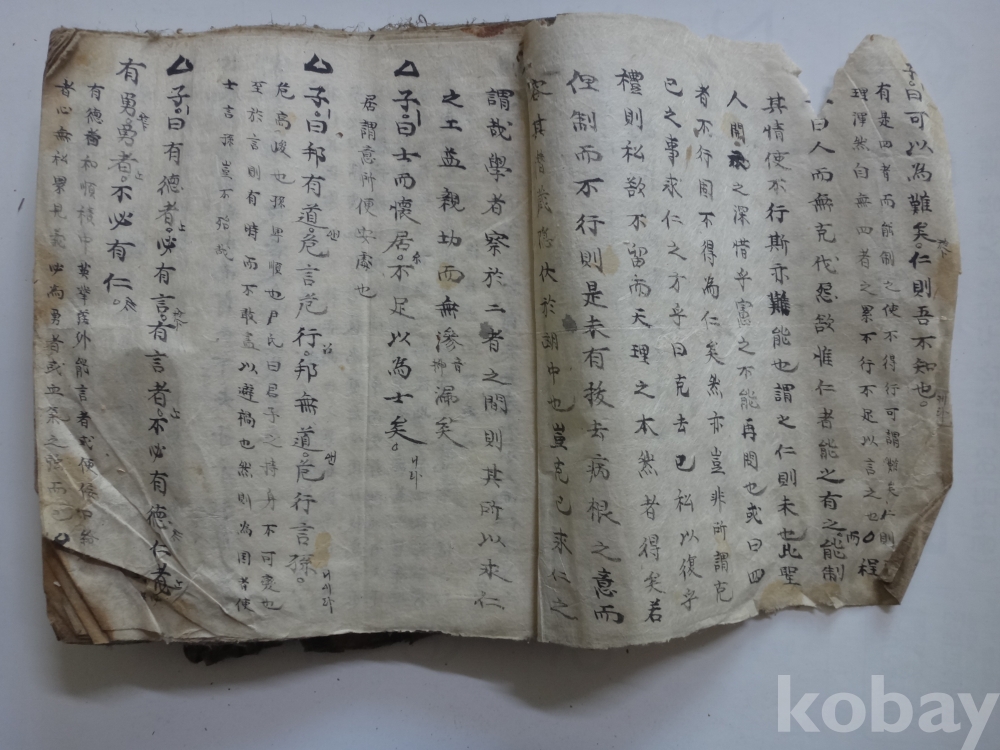 子曰可以為難矣仁則吾不知也
有是四者而能制之使不得行可謂難矣仁則
理渾然自無四者之累不行不足以言之也 程
子曰人而無克伐怨欲惟仁者能之有之而能制
其情使不行斯亦難能也謂之仁則未也此聖
人開示之深惜乎憲之不能再問也或曰四
者不行固不得為仁矣然亦豈非所謂克
己之事求仁之方乎曰克去己私以復乎
禮則私欲不留而天理之本然者得矣若
但制而不行則是未有拔去病根之意而
容其潛藏隱伏於胸中也豈克己求仁之
謂哉學者察於二者之間則其所以求仁
之工益親切而無滲漏矣
子曰士而懷居不足以為士矣 니라
居謂意所便安處也
子曰邦有道危言危行邦無道危行言孫
危高峻也孫卑順也尹氏曰君子之持身不可變也
至於言則有時而不敢盡以避禍也然則為國者使
士言孫豈不殆哉
子曰有德者必有言有言者不必有德仁者
有勇勇者不必有仁
有德者和順積中英華發外能言者或便佞口給
者心無私累見義必為勇者或血氣之强而已
kobay